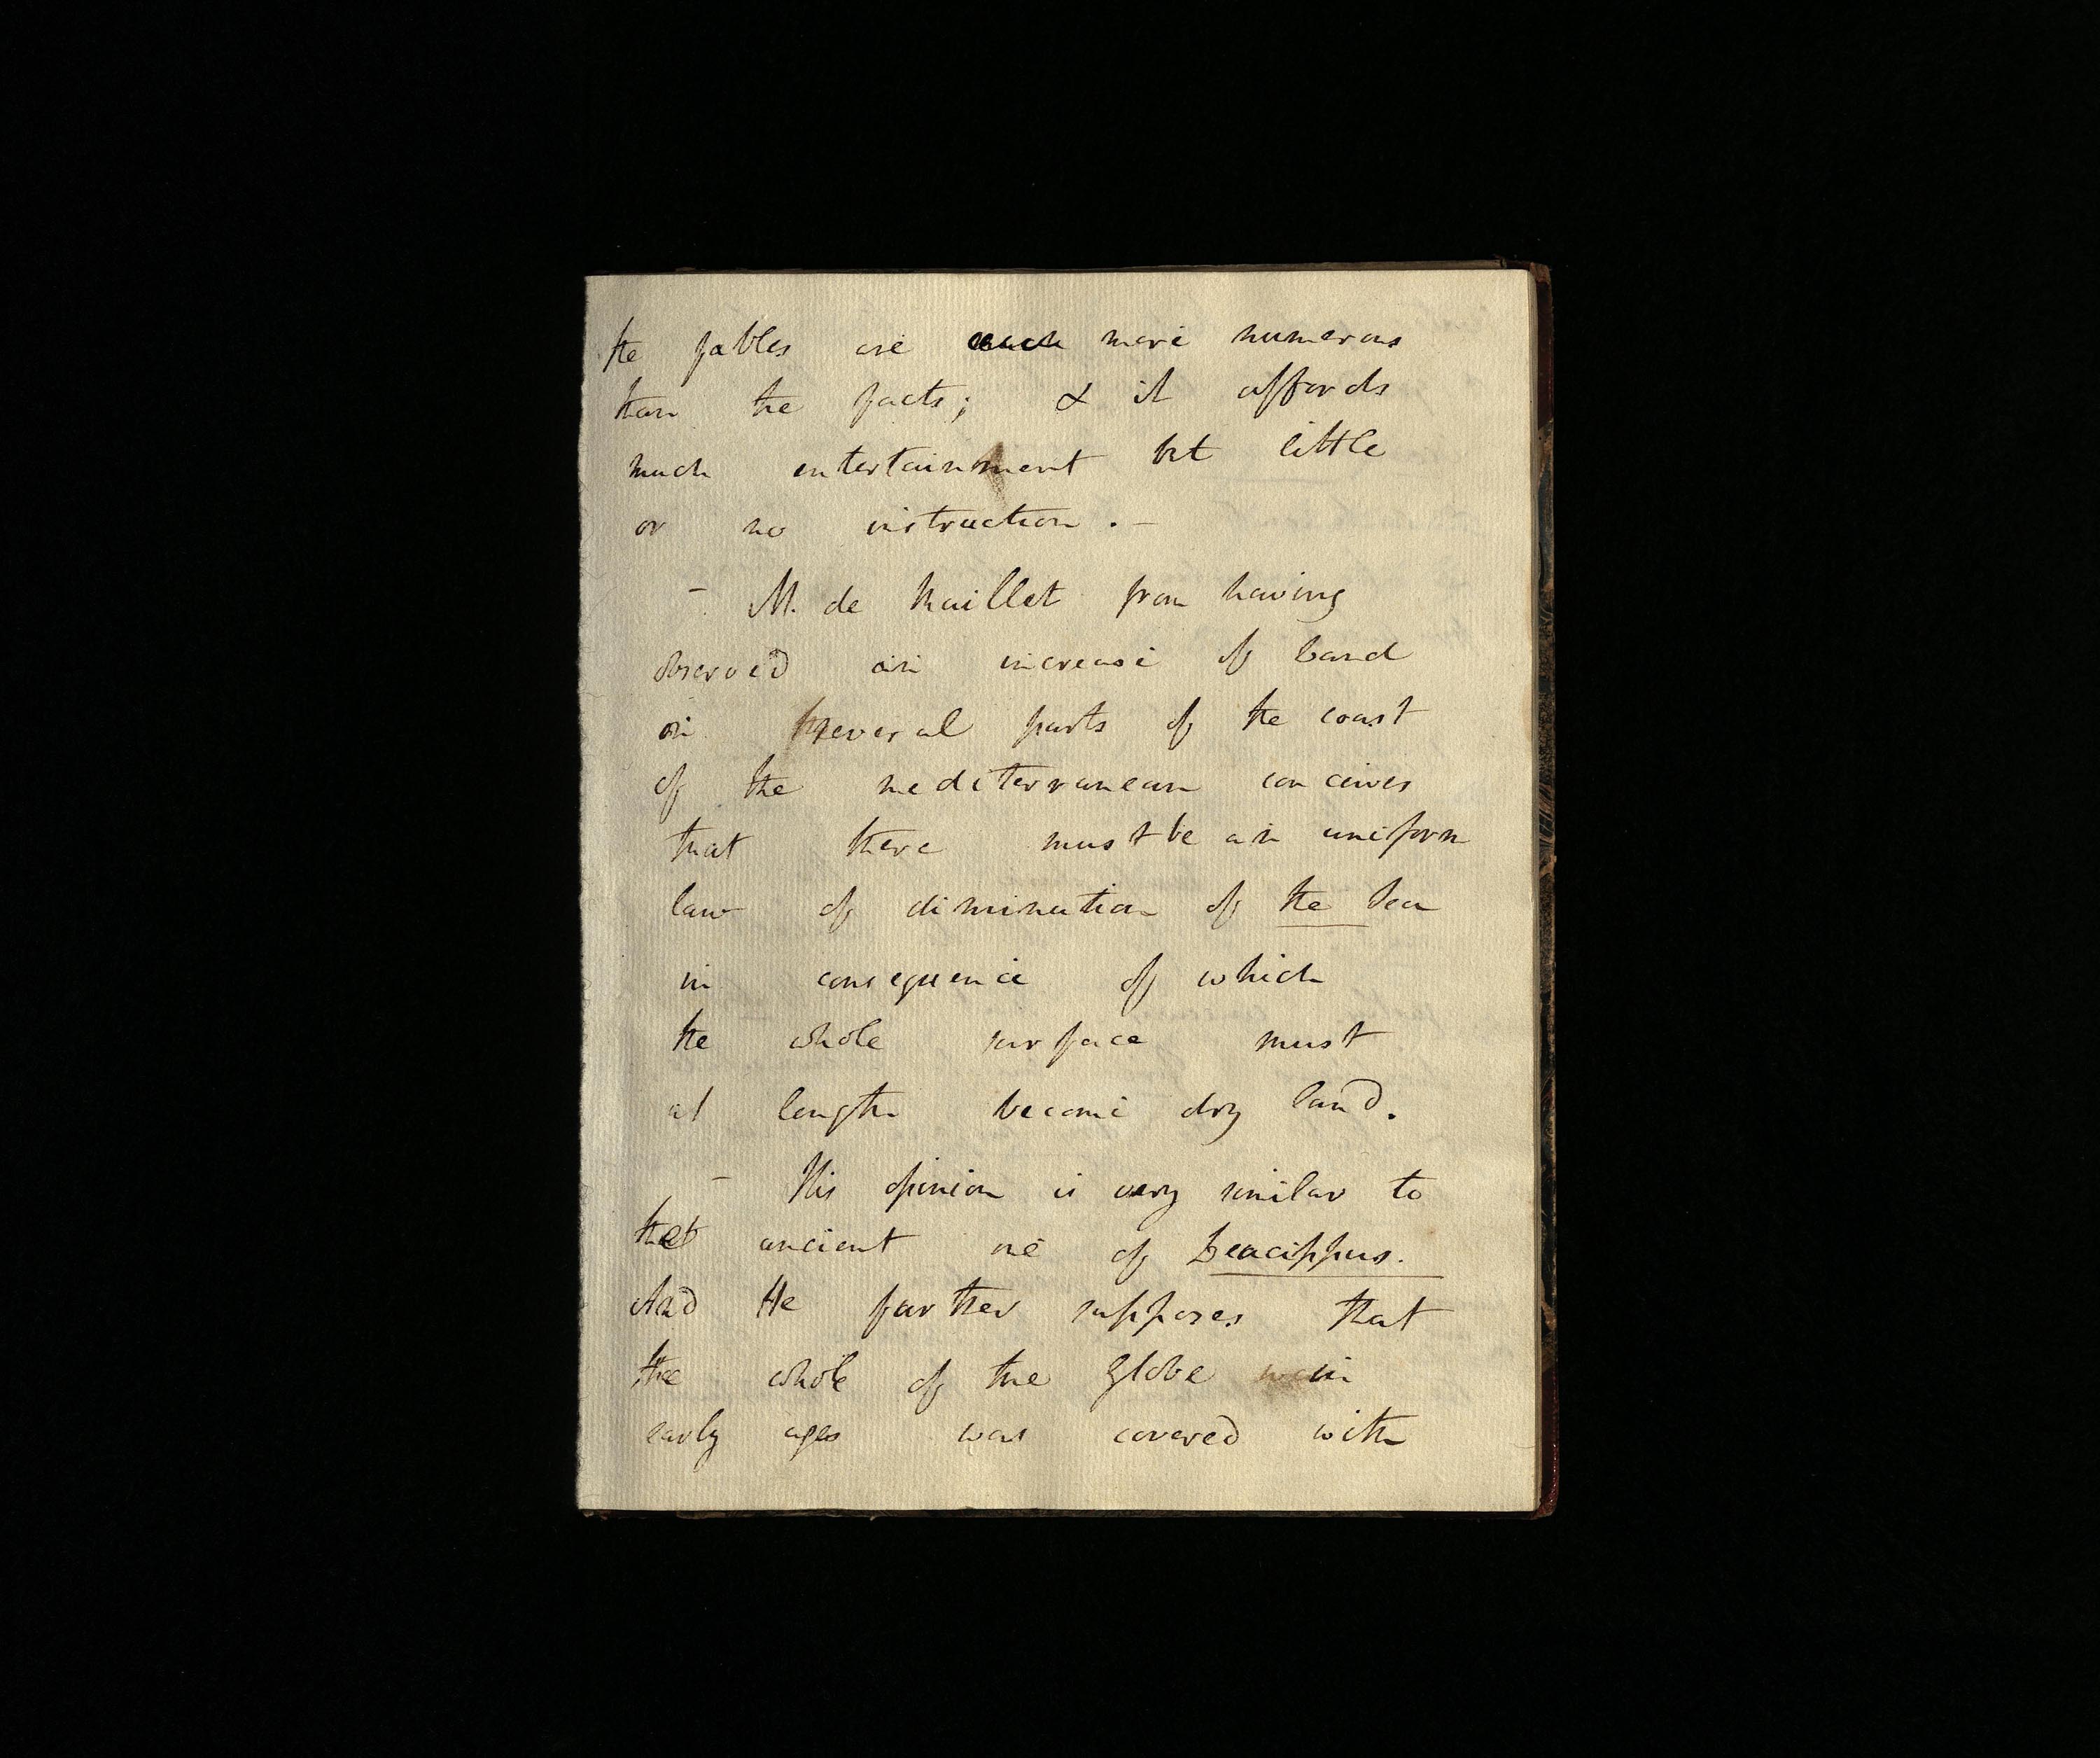 the fables are much more numerous
than the facts; & it affords
much entertainment but little
or no instruction. -
- M. de Maillet from having
observed an increase of land
on several parts of the coast
of the mediterranean conceives
that there must be an uniform
law of diminution of the Sea
in consequence of which
the whole surface must
at length become dry land.
- His opinion is very similar to
that ancient one of Leucippus.
And He farther supposes that
the whole of the Globe in
early ages was covered with